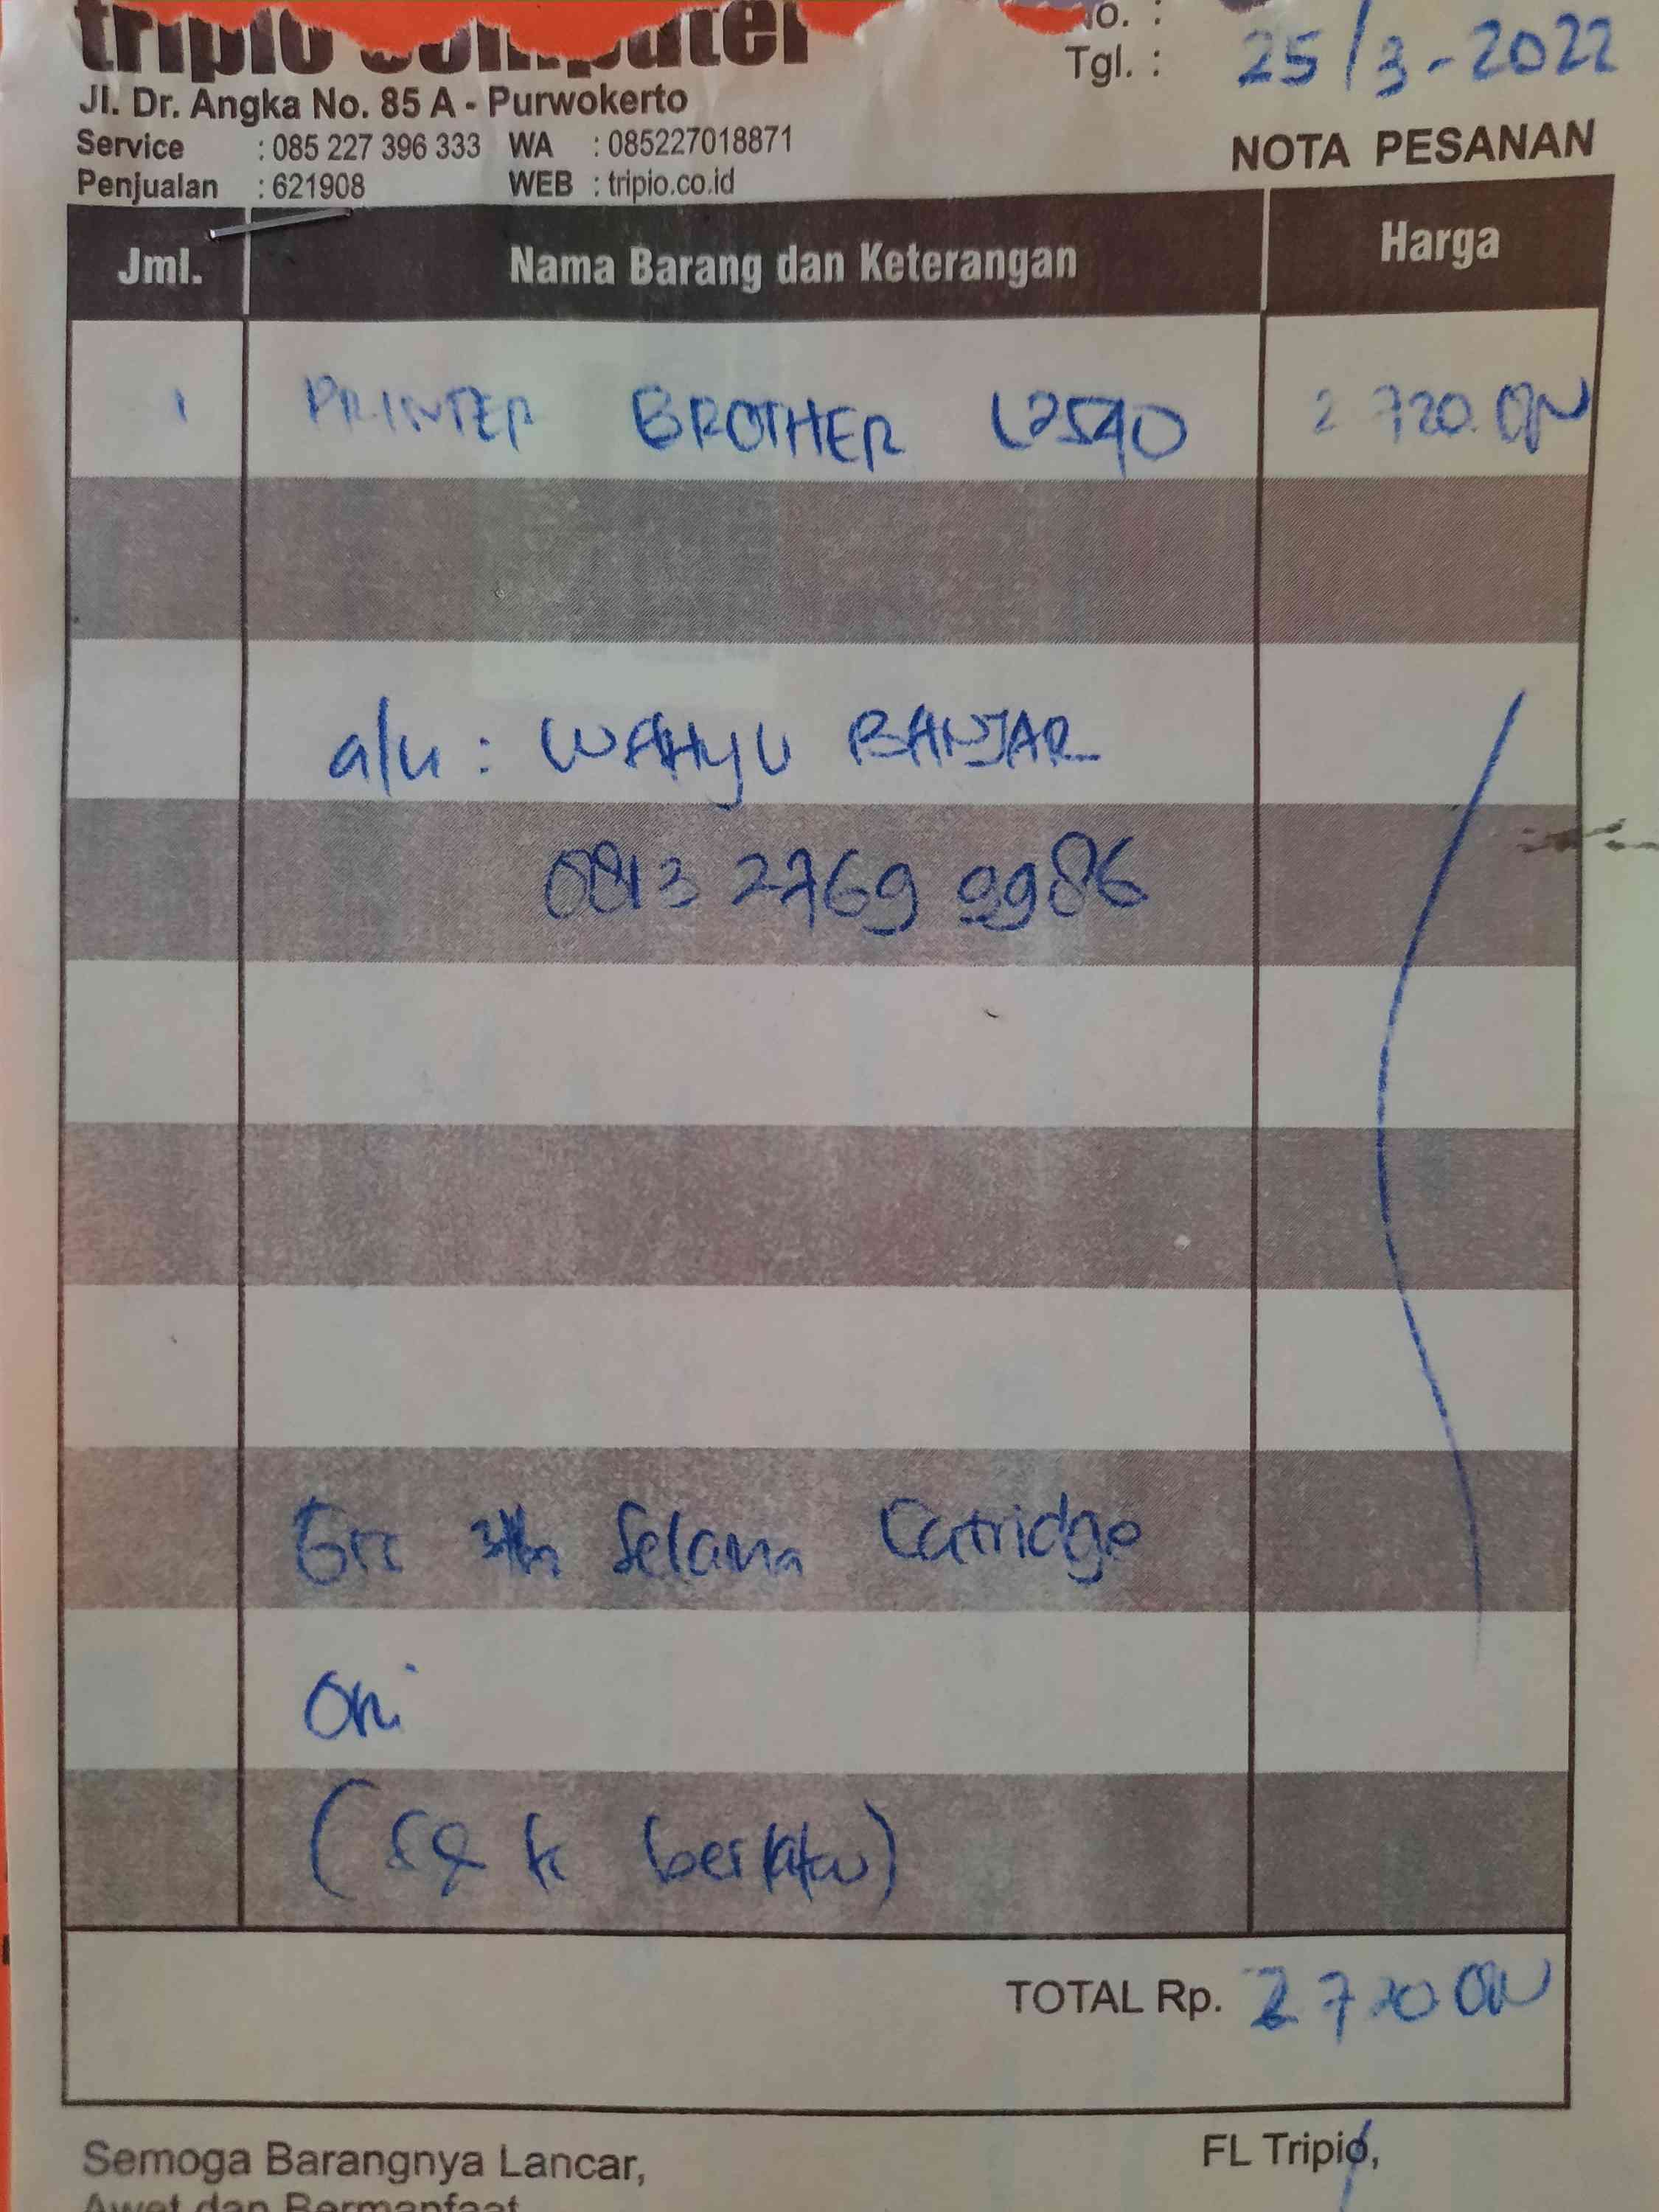 tripio computer
No. :
Tgl. : 25/3-2022
Jl. Dr. Angka No. 85 A - Purwokerto
Service : 085 227 396 333 WA : 085227018871
Penjualan : 621908 WEB : tripio.co.id
NOTA PESANAN
Jml. Nama Barang dan Keterangan Harga
1 PRINTER BROTHER L2540 2 720.000
a/n : WAHYU BANJAR
0813 2769 9986
Grc 3th Selama Catridge
Ori
(S & k berlaku)
TOTAL Rp. 2 720 000
Semoga Barangnya Lancar,
FL Tripio,
Awet dan Bermanfaat